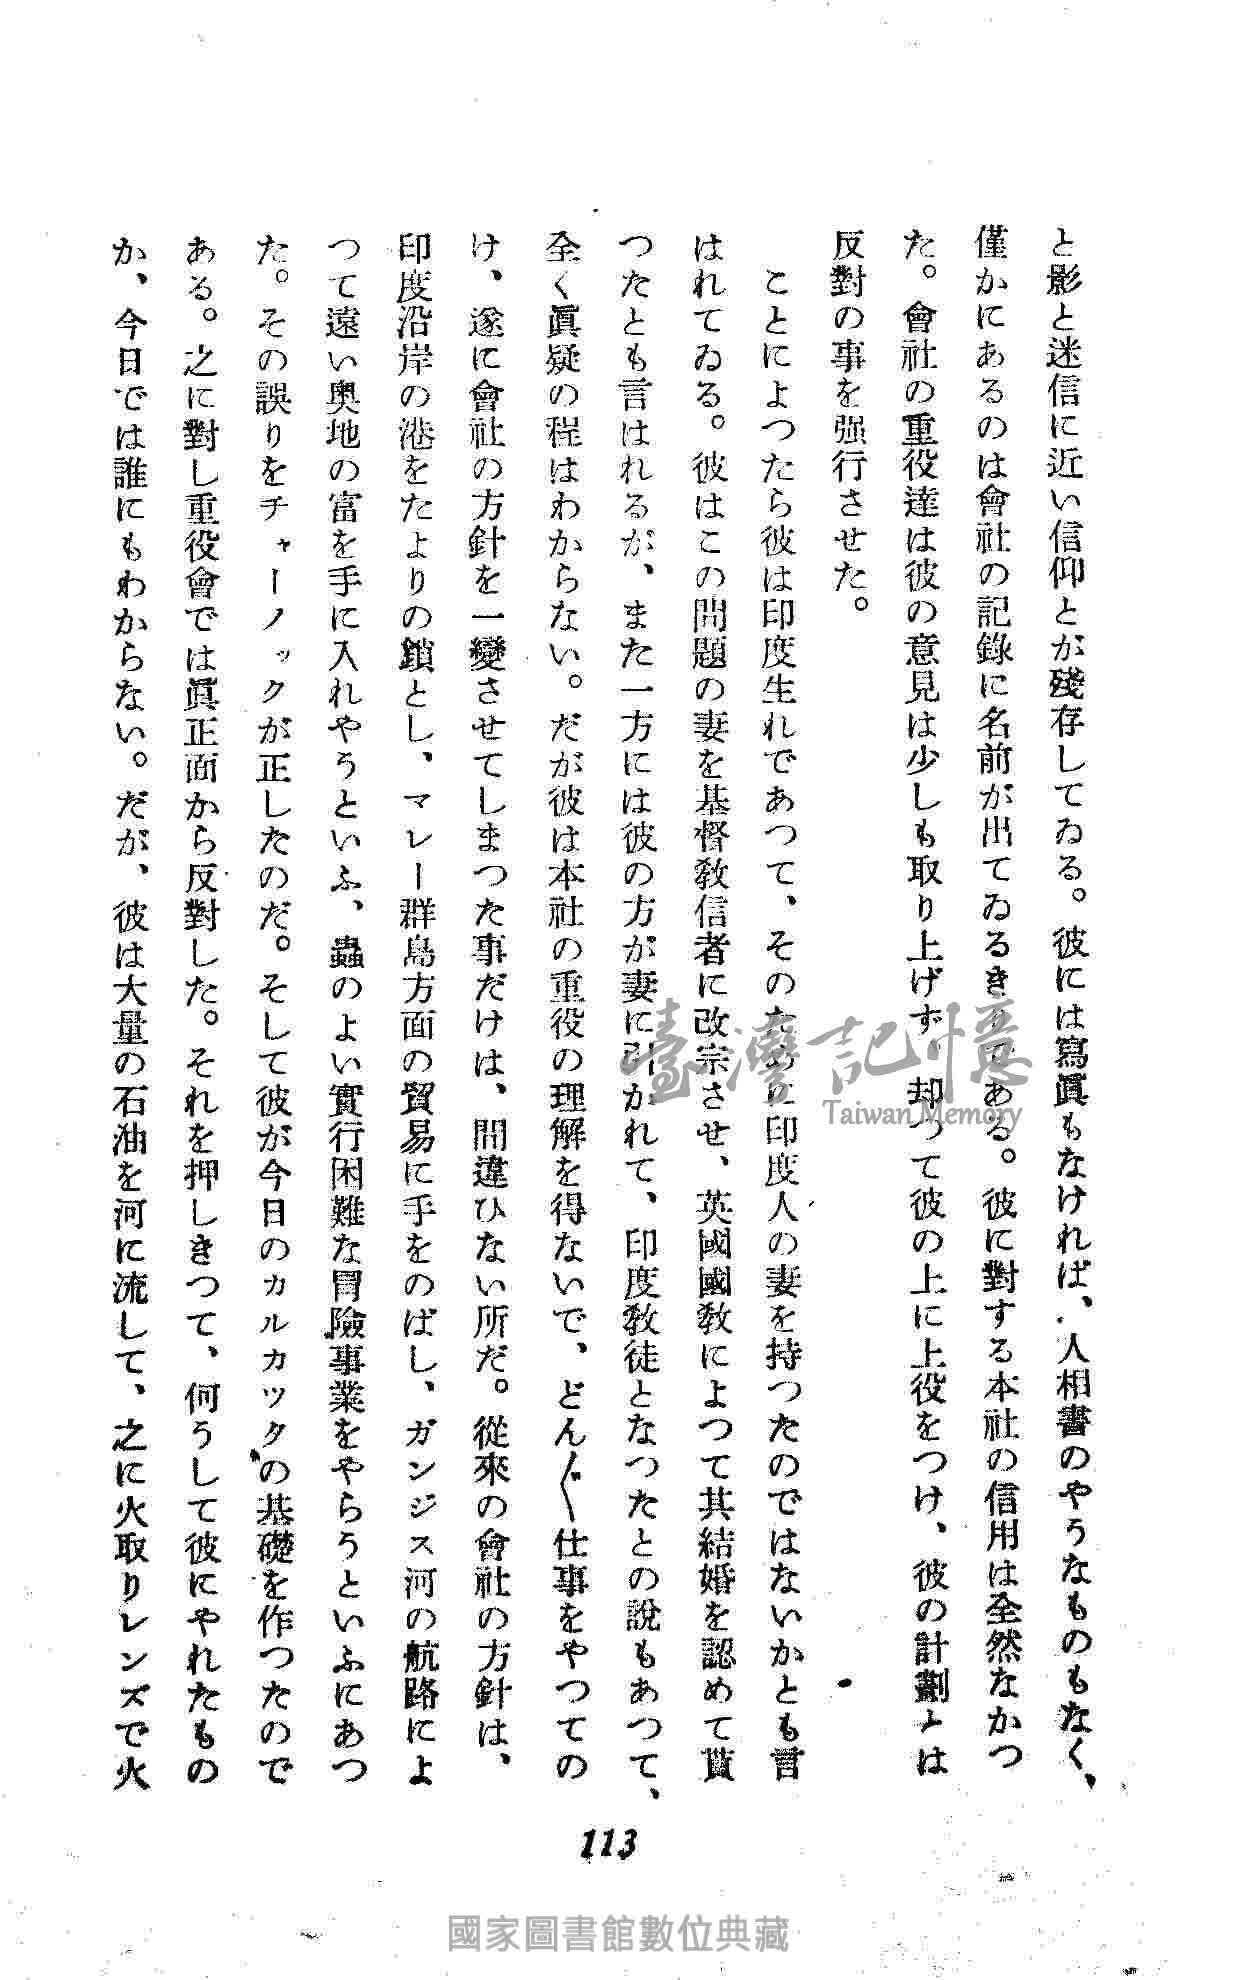 と影と迷信に近い信仰とが殘存してゐる。彼には寫眞もなければ、人相書のやうなものもなく、
僅かにあるのは會社の記錄に名前が出てゐるきりである。彼に對する本社の信用は全然なかつ
た。會社の重役達は彼の意見は少しも取り上げず、却つて彼の上に上役をつけ、彼の計劃とは
反對の事を强行させた。
ことによつたら彼は印度生れであつて、そのために印度人の妻を持つたのではないかとも言
はれてゐる。彼はこの問題の妻を基督敎信者に改宗させ、英國國敎によつて其結婚を認めて貰
つたとも言はれるが、また一方には彼の方が妻に引かれて、印度敎徒となつたとの說もあつて、
全く眞疑の程はわからない。だが彼は本社の重役の理解を得ないで、どん〲仕事をやつての
け、遂に會社の方針を一變させてしまつた事だけは、間違ひない所だ。從來の會社の方針は、
印度沿岸の港をたよりの鎖とし、マレー群島方面の貿易に手をのばし、ガンジス河の航路によ
つて遠い奧地の富を手に入れやうといふ、蟲のよい實行困難な冒險事業をやらうといふにあつ
た。その誤りをチャーノックが正したのだ。そして彼が今日のカルカッタの基礎を作つたので
ある。之に對し重役會では眞正面から反對した。それを押しきつて、何うして彼にやれたもの
か、今日では誰にもわからない。だが、彼は大量の石油を河に流して、之に火取りレンズで火
113
臺灣記憶
Taiwan Memory
國家圖書館數位典藏